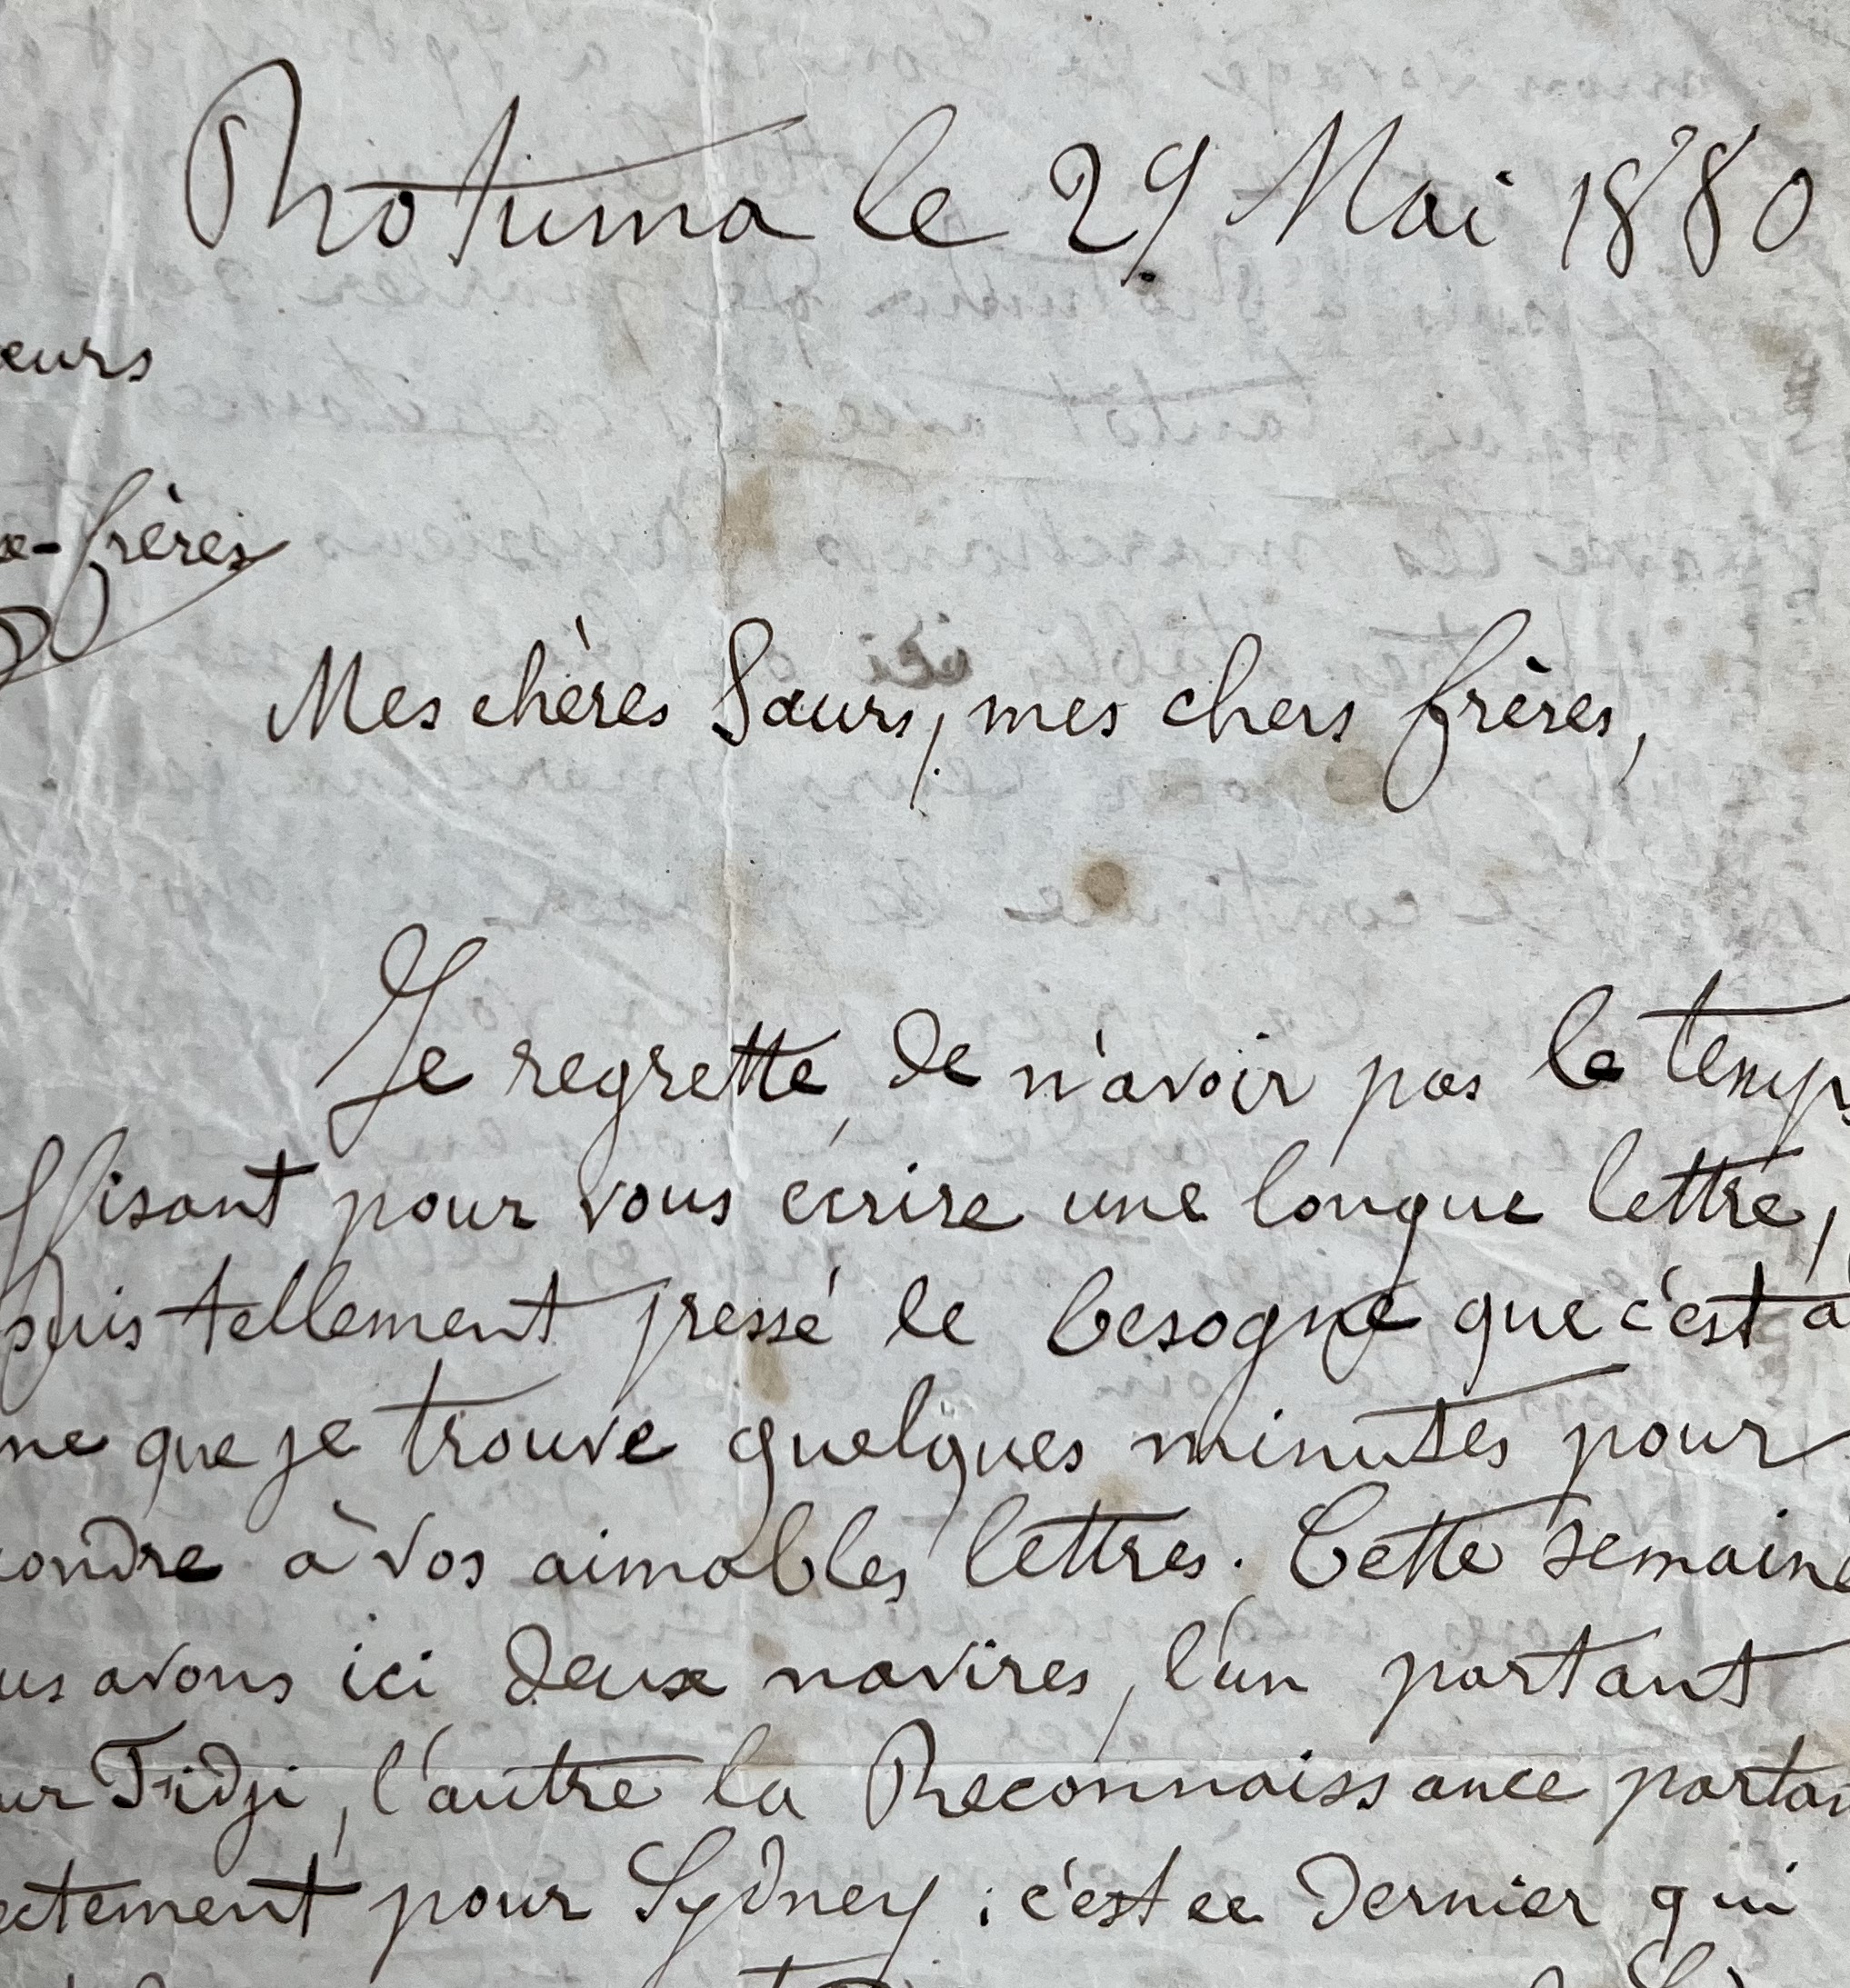 Rhotuma le 29 Mai 1880
œurs
x-frères
Mes chères Sœurs, mes chers frères,
Je regrette de n'avoir pas le temps
ffisant pour vous écrire une longue lettre,
suis tellement pressé le besogne que c'est à
ne que je trouve quelques minutes pour
ondre à vos aimables lettres. Cette semaine
us avons ici deux navires, l'un partant
ur Fidji, l'autre la Reconnaissance partan
ectement pour Sydney : c'est ce dernier qui